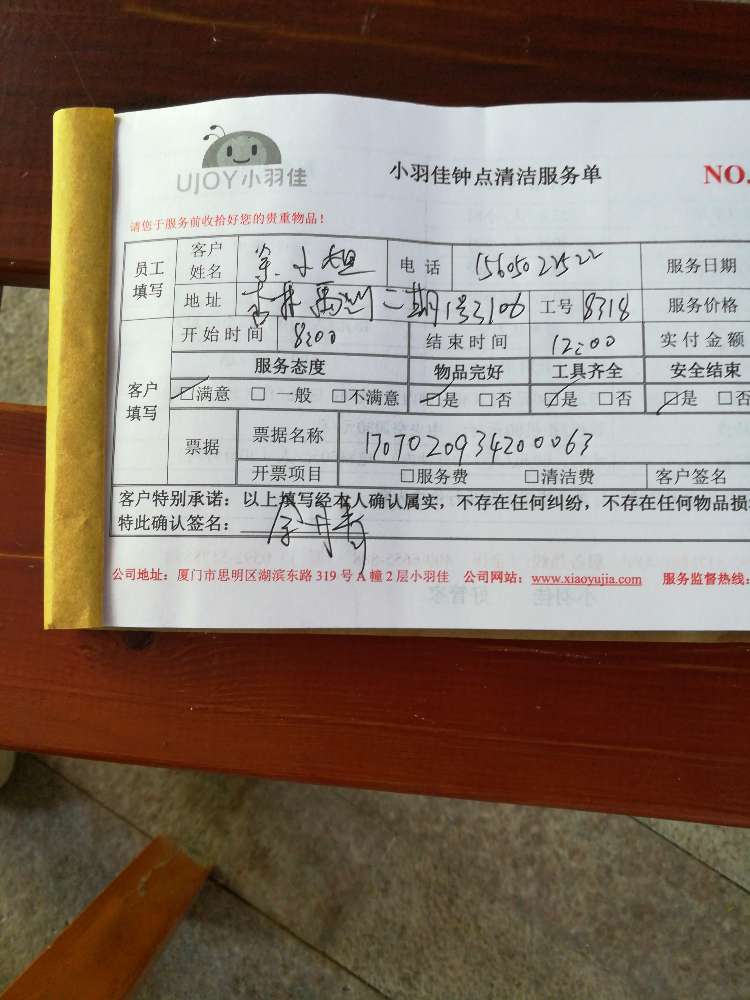 UJOY小羽佳
小羽佳钟点清洁服务单
NO.
请您于服务前收拾好您的贵重物品！
员工填写 客户姓名 小姐 电话 服务日期
地址 二期1号2106 工号 8318 服务价格
客户填写 开始时间 8:00 结束时间 12:00 实付金额
服务态度 物品完好 工具齐全 安全结束
☑满意 □ 一般 □不满意 ☑是 □否 ☑是 □否 ☑是 □否
票据 票据名称 1707020934200063
开票项目 □服务费 □清洁费 客户签名
客户特别承诺：以上填写经本人确认属实，不存在任何纠纷，不存在任何物品损
特此确认签名：
公司地址：厦门市思明区湖滨东路 319 号 A 幢 2 层小羽佳 公司网站：www.xiaoyujia.com 服务监督热线：